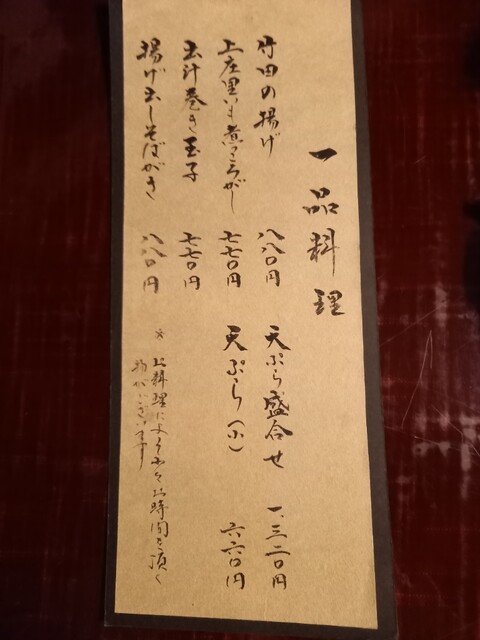 一品料理
竹田の揚げ 八八〇円
上庄里いも煮っころがし 七七〇円
出汁巻き玉子 七七〇円
揚げ出しそばがき 八八〇円
天ぷら盛合せ 一、三二〇円
天ぷら(小) 六六〇円
※ お料理により少々お時間を頂く
物がございます